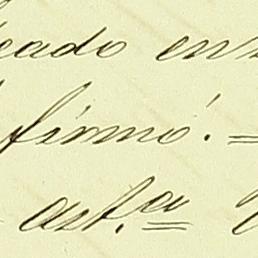 eado en
firmó. =
ast.ª